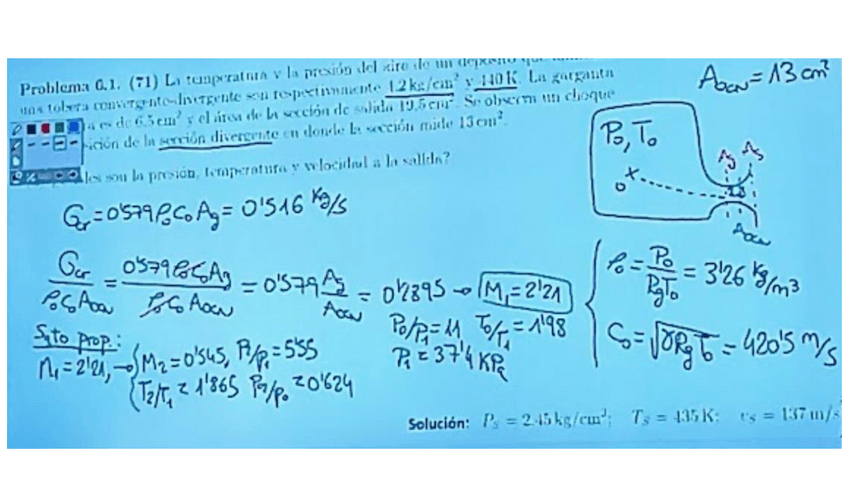 Problema 6.1. (71) La temperatura y la presión del aire de un depósito que
una tobera convergente-divergente son respectivamente 4.2 kg/cm² y 440 K. La garganta
a es de 6.5 cm² y el área de la sección de salida 19.5 cm². Se observa un choque
sición de la sección divergente en donde la sección mide 13 cm².
les son la presión, temperatura y velocidad a la salida?
A_OCN = 13 cm²
P₀, T₀
Ag As
A_OCN
Gcr = 0'579 ρ₀ C₀ Ag = 0'516 Kg/s
Gcr / ρ₀ C₀ A_OCN = 0'579 ρ₀ C₀ Ag / ρ₀ C₀ A_OCN = 0'579 Ag / A_OCN = 0'2895 → M₁ = 2'21
P₀/P₁ = 11 T₀/T₁ = 1'98
P₁ = 37'4 KPa
ρ₀ = P₀ / RgT₀ = 3'26 Kg/m³
C₀ = √γRgT₀ = 420'5 m/s
Salto prop.:
M₁ = 2'21, → M₂ = 0'545, P₂/P₁ = 5'55
T₂/T₁ = 1'865 P₂₀/P₁₀ = 0'624
Solución: Pₛ = 2.45 kg/cm²; Tₛ = 435 K; vₛ = 137 m/s